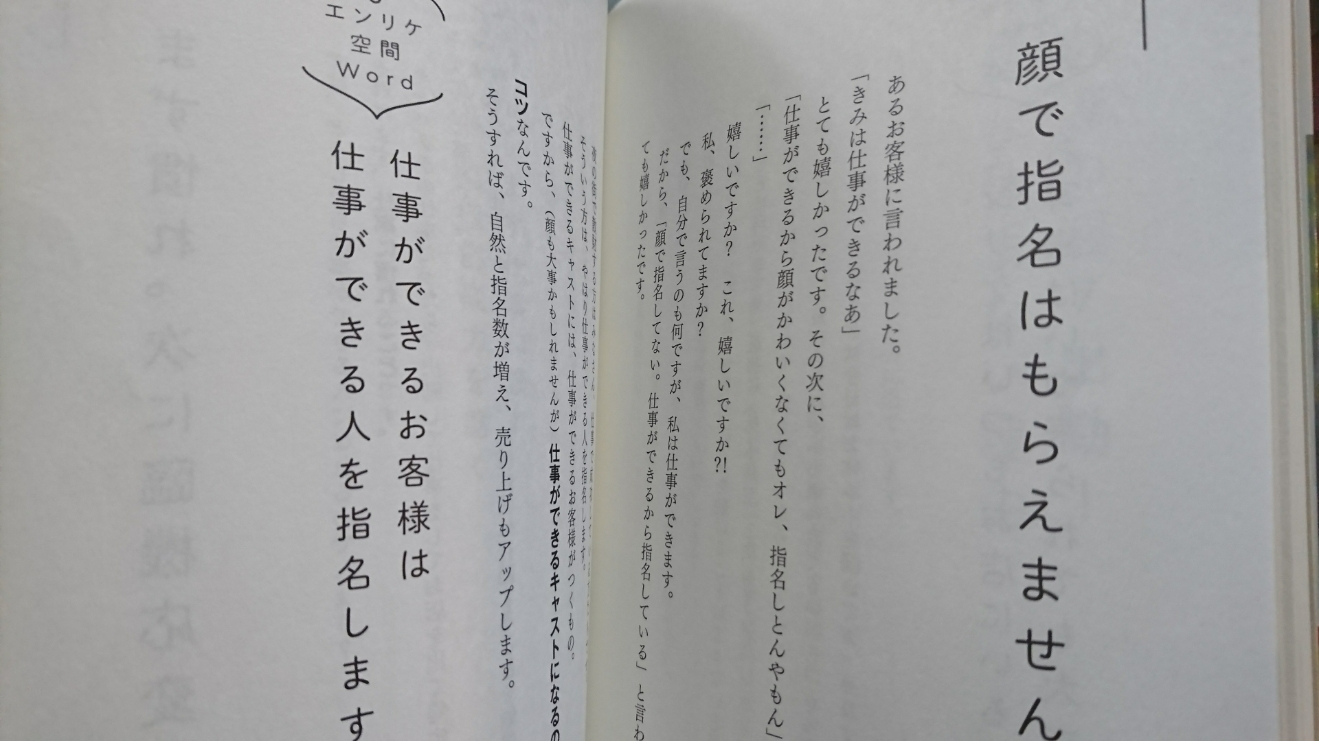 顔で指名はもらえません
あるお客様に言われました。
「きみは仕事ができるなあ」
とても嬉しかったです。その次に、
「仕事ができるから顔がかわいくなくてもオレ、指名しとんやもん」
「……」
嬉しいですか？　これ、嬉しいですか?!
私、褒められてますか？
でも、自分で言うのも何ですが、私は仕事ができます。
だから、「顔で指名してない。仕事ができるから指名している」と言わ
ても嬉しかったです。
そういう方は、やはり仕事ができる人を指名します。
仕事ができるキャストには、仕事ができるお客様がつくもの。
ですから、（顔も大事かもしれませんが）仕事ができるキャストになるの
コツなんです。
そうすれば、自然と指名数が増え、売り上げもアップします。
エンリケ
空間
Word
仕事ができるお客様は
仕事ができる人を指名します